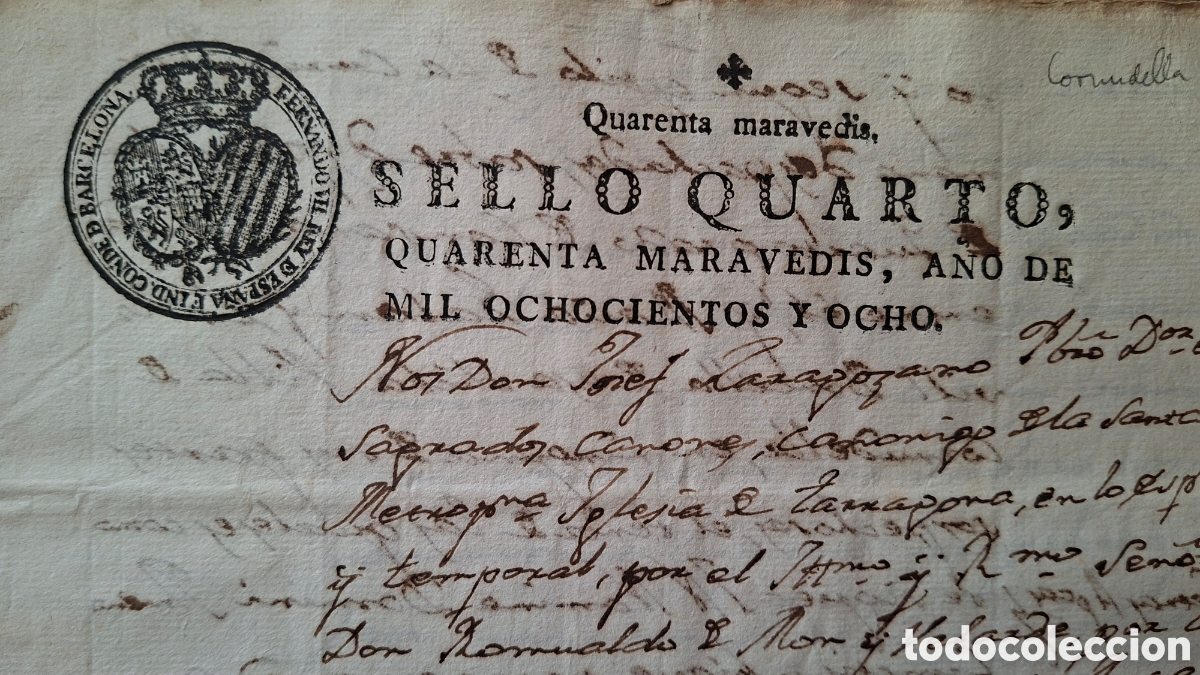 FERNANDO VII. REY D ESPAÑA E IND. CONDE D BARCELONA.
Cornudella
Quarenta maravedis.
SELLO QUARTO,
QUARENTA MARAVEDIS, AÑO DE
MIL OCHOCIENTOS Y OCHO.
Nos Don Josef Zaragozano Pbro Dor
Sagrados Canones, canonigo de la Santa
Metropna Iglesia de Tarragona, en lo esp
y temporal, por el Illmo y Rmo Señor
Don Romualdo de Mon y Velarde por
todocoleccion